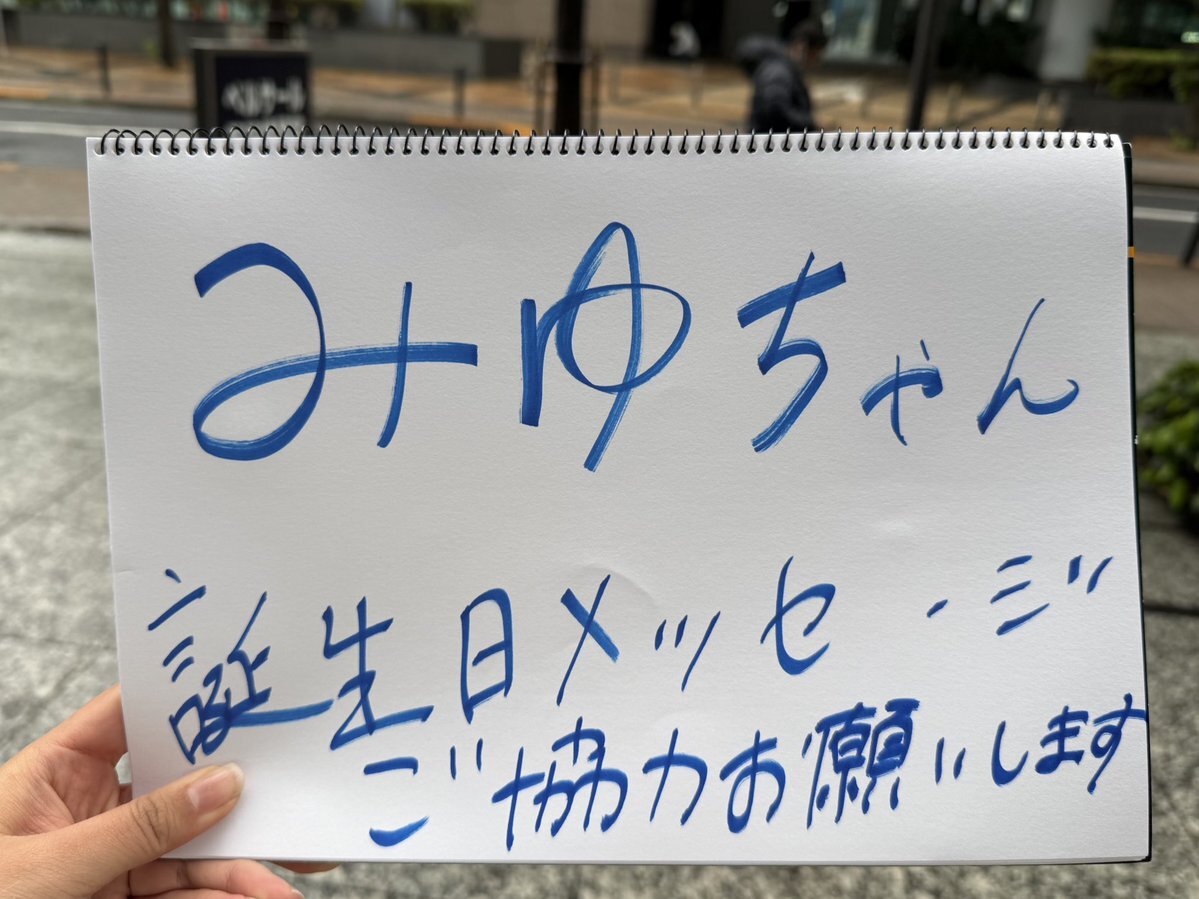 みゆちゃん
誕生日メッセージ
ご協力お願いします